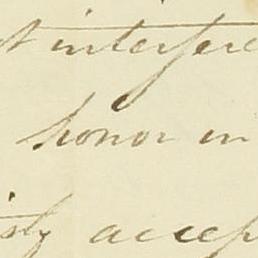 t interfere
honor in
sly accep